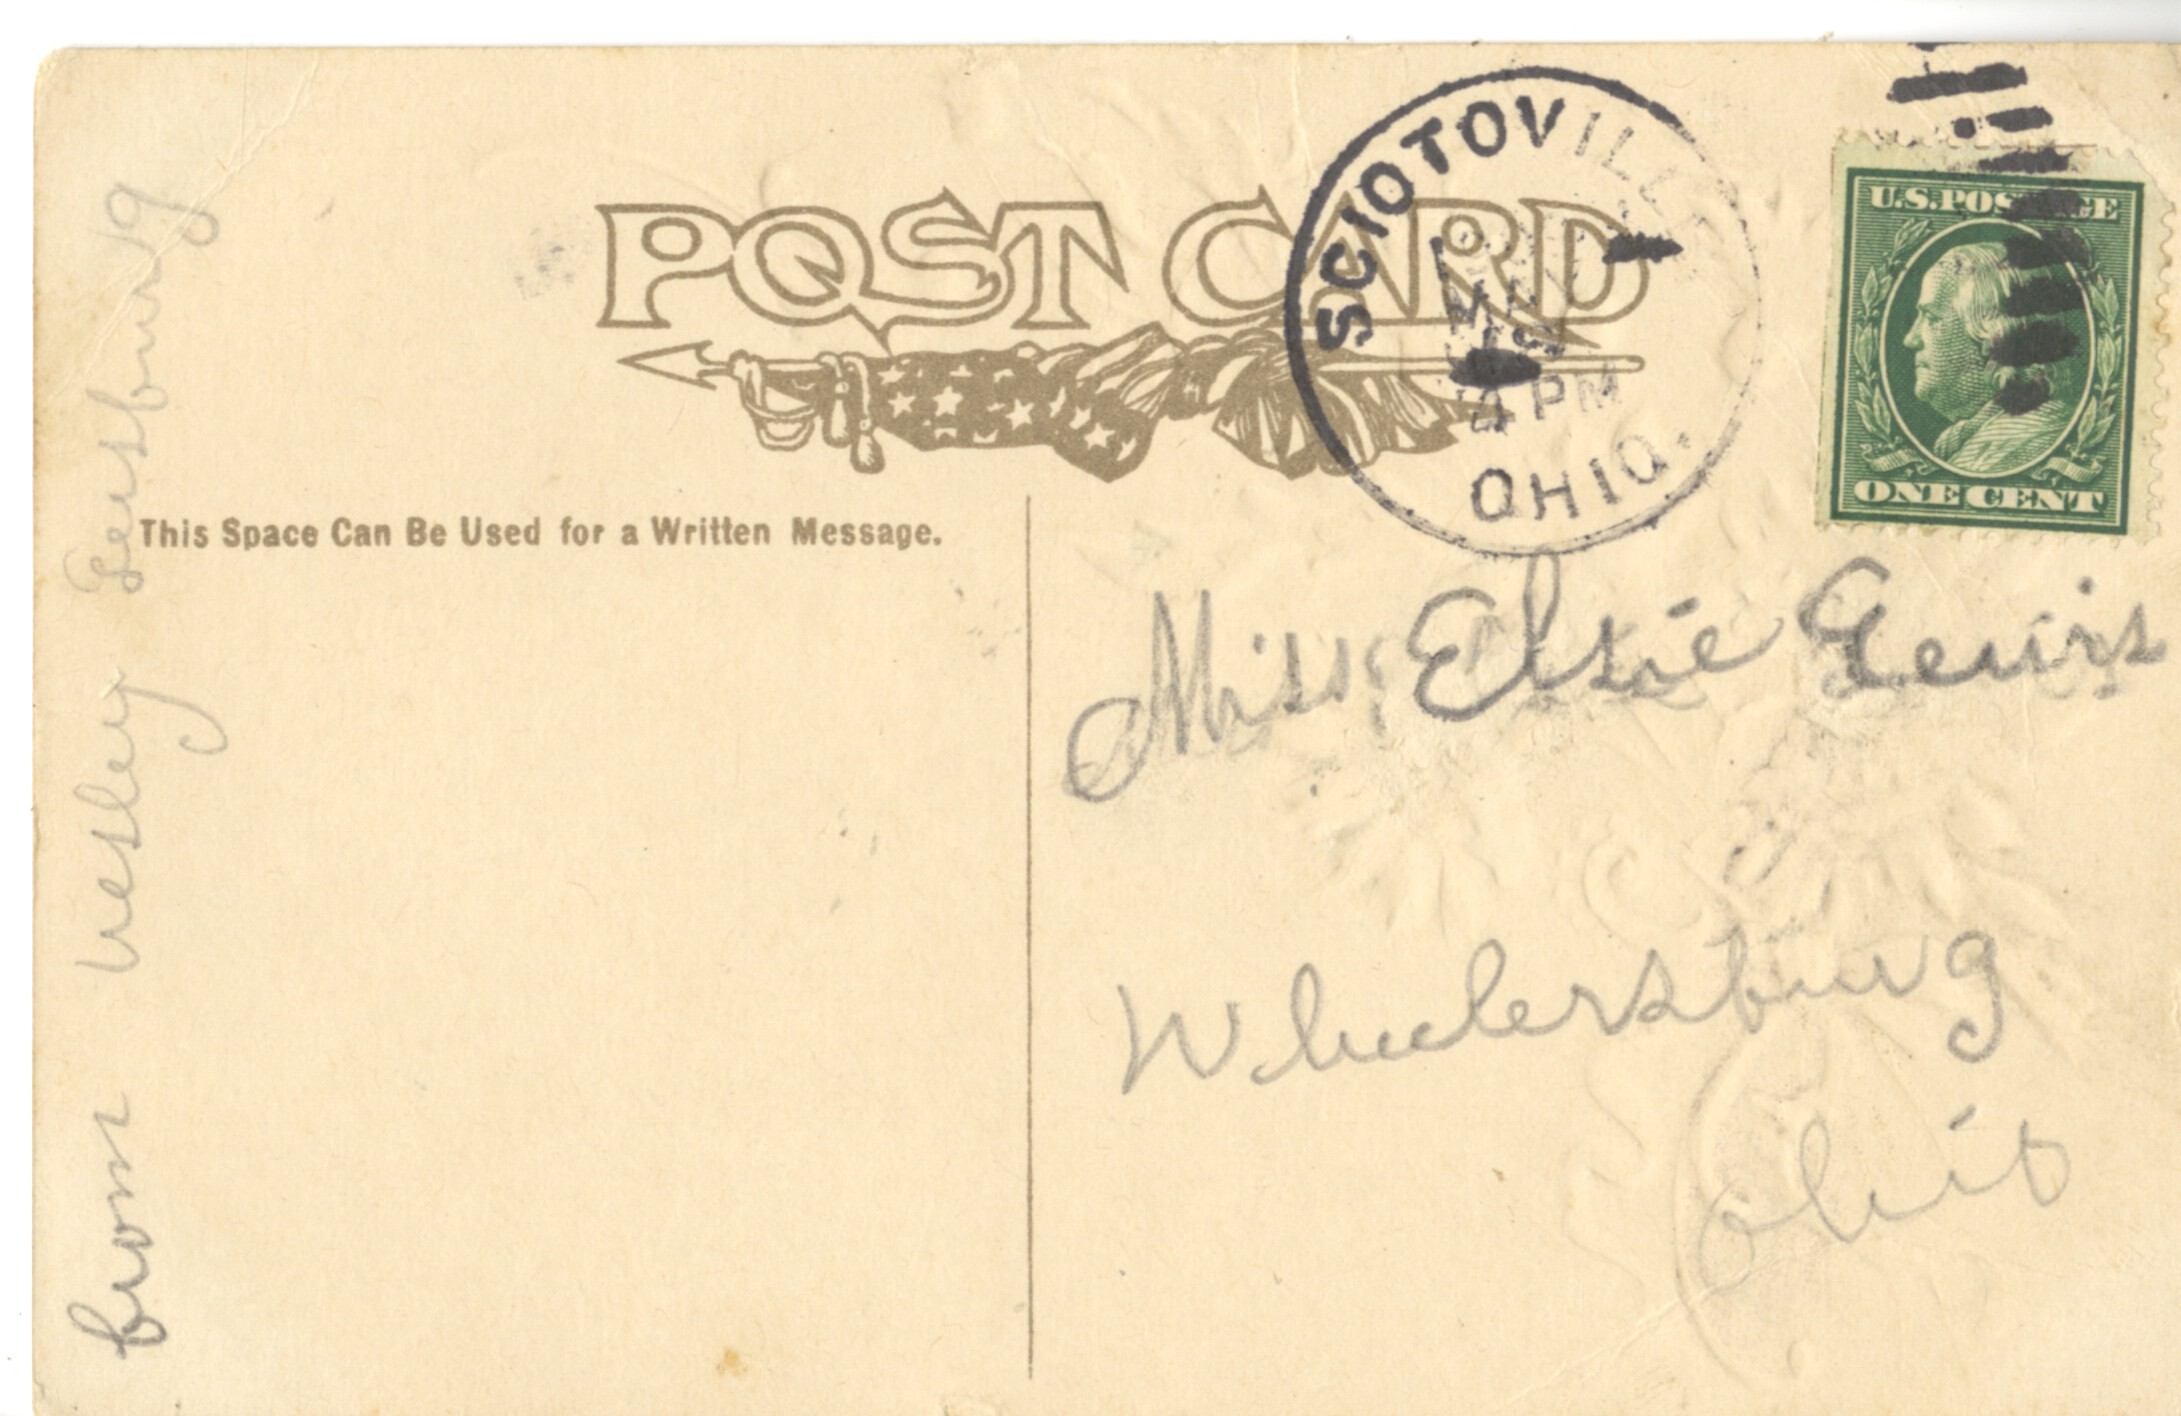 POST CARD
SCIOTOVILLE
4 PM
OHIO.
U.S. POSTAGE
ONE CENT
This Space Can Be Used for a Written Message.
Miss Elsie Lewis
Wheelersburg
Ohio
from Wesley